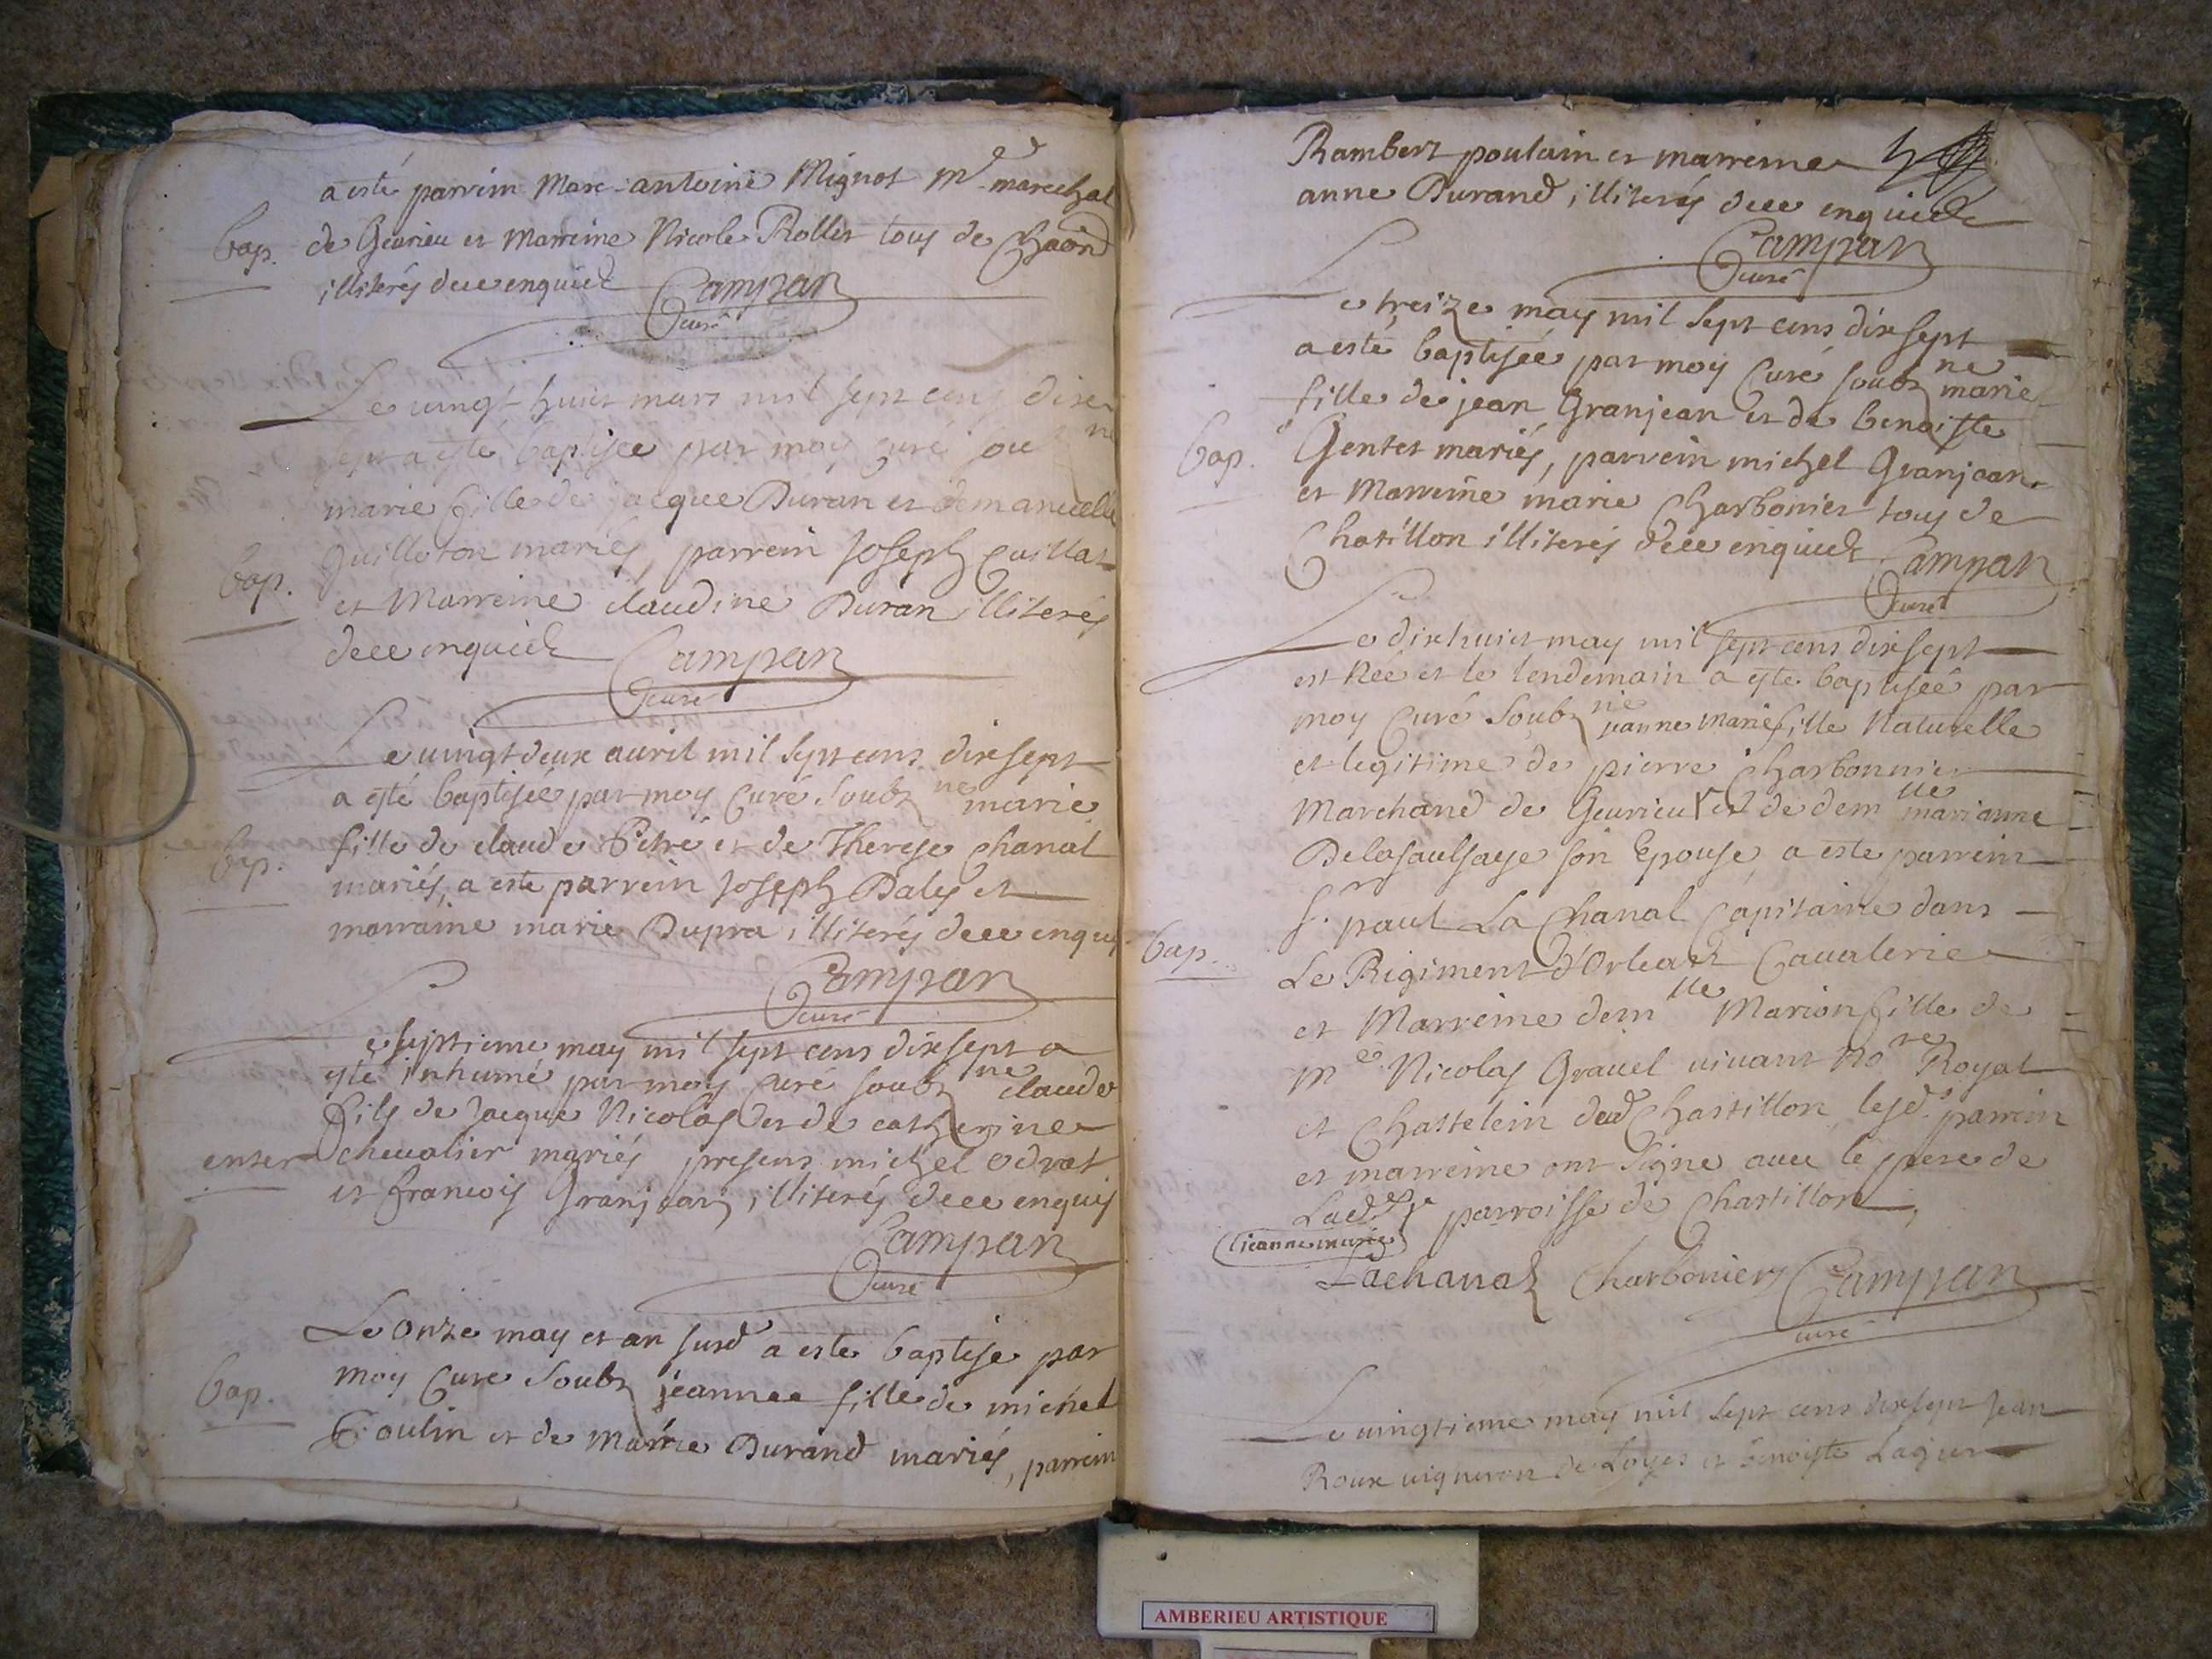 a esté parrin Marc-antoine Mignot mᵉ marechal
bap. de Gevrieu et Marreine Nicole Rollet tous de
illiterés de ce enquied Campan
curé
Le vingt huict mars mil sept cens dix
sept a esté baptisée par moy curé soubz ne
marie fille de jacque Duran et
Guilloton mariés, parrein Joseph Cuillat
bap.
et Marreine claudine Duran illiterés
de ce enquied Campan
curé
Le vingt deux auril mil sept cens dix sept
a esté baptiseé par moy Curé soubz ne marie
bap. fille de claude Pitré et de Therese Chanal
mariés, a esté parrein Joseph Baly et
marraine marie Dupra illiterés de ce enquis
Campan
curé
Le septieme may mil sept cens dix sept a
esté inhumé par moy curé soubz ne claude
fils de Jacque Nicolas et de catherine
enter chevalier mariés presens michel odrat
et francois Granjean, illiterés de ce enquis
Campan
curé
Le Onze may et an susd a este baptise par
bap. moy Cure Soubz jeannee fille de michel
Poulin et de Marie Durand mariés, parrein
Rambert poulain et marreine
anne Durand, illiterés de ce enquied
Campan
curé
Le treize may mil sept cens dix sept
a esté baptiseé par moy Curé soubz ne marie
fille de jean Granjean et de benoiste
bap. Gentet mariés, parrein michel Granjean
et Marreine marie Charbonier tous de
Chatillon illiterés de ce enquied Campan
curé
Le dix huict may mil sept cens dix sept
est Née et le lendemain a esté baptiseé par
moy Curé Soubz ne jeanne marie fille Naturelle
et legitime de pierre Charbonnier
Marchand de Gevrieu et de dem lle marianne
Delasaulsaye son Epouse, a este parrein
sʳ. paul La Chanal Capitaine dans
bap. Le Rigiment d'Orleans Cavalerie
et Marreine dem lle Marion fille de
mᵉ Nicolas Gravel vivant Noʳᵉ Royal
et Chastelein dud Chastillon, lesd. parrein
et marreine ont signe avec le pere de
Lad parroisse de Chastillon,
(jeanne marie)
Lachanal Charbonier Campan
curé
Le vingtieme may mil sept cens dix sept Jean
Roux vigneron de Loyes et benoiste
AMBERIEU ARTISTIQUE